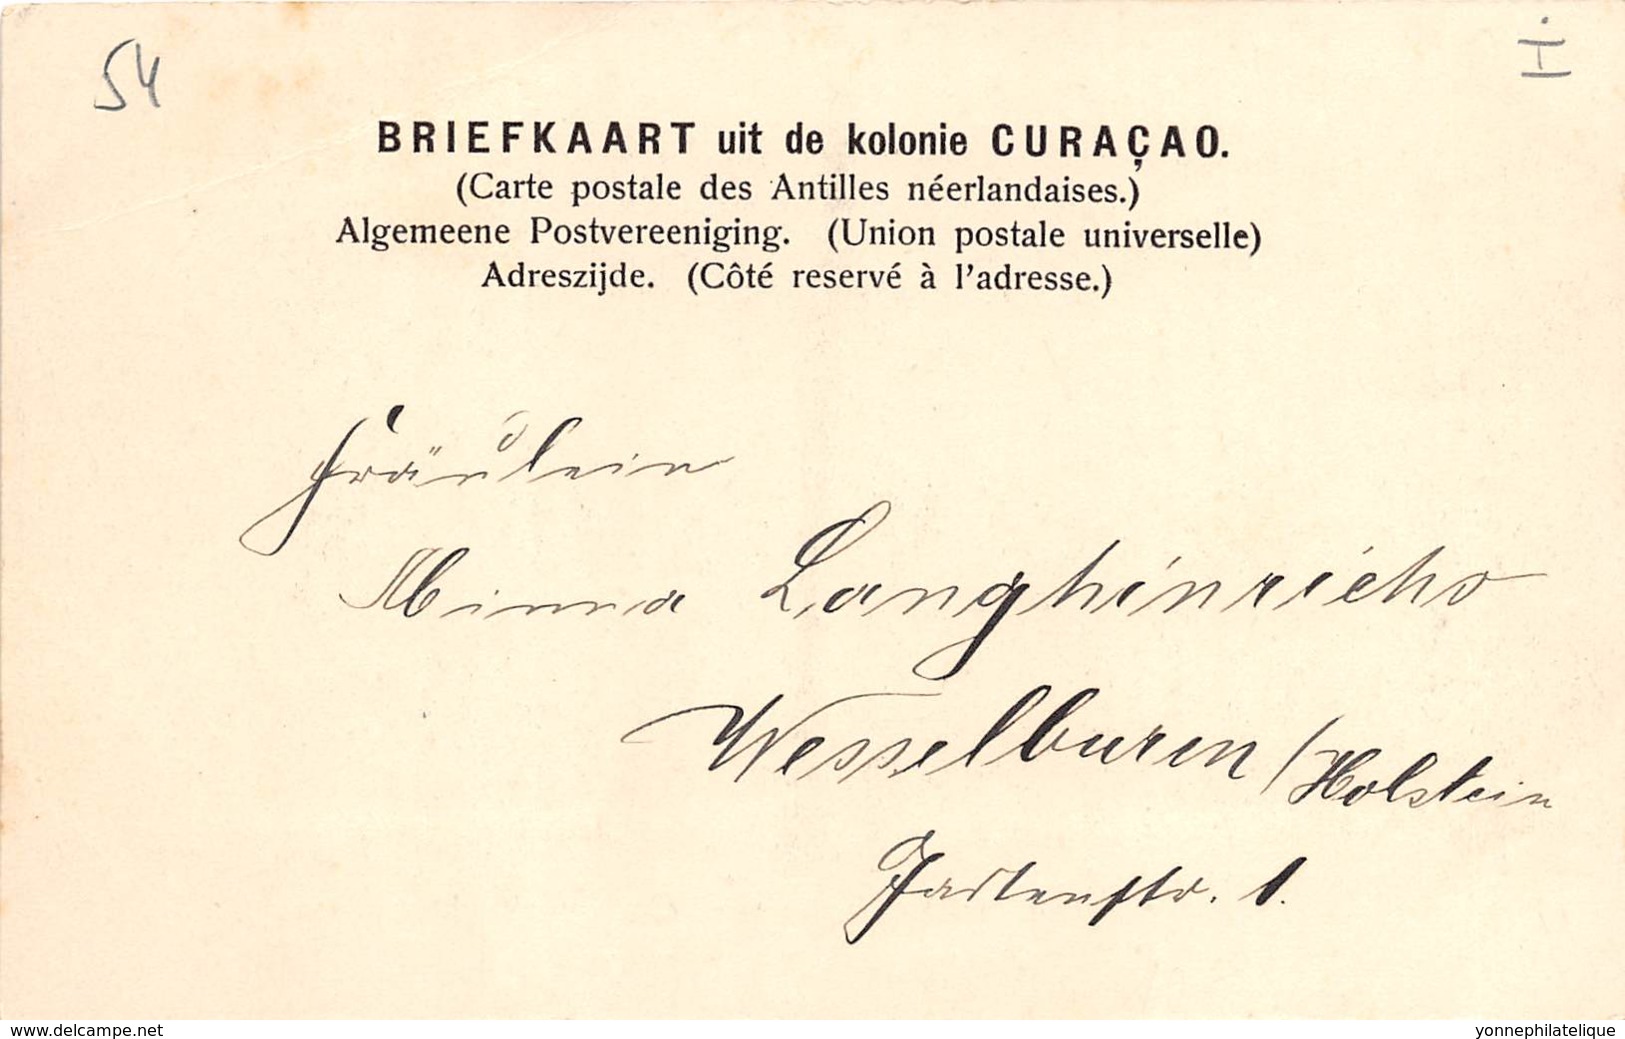 54
I
BRIEFKAART uit de kolonie CURAÇAO.
(Carte postale des Antilles néerlandaises.)
Algemeene Postvereeniging. (Union postale universelle)
Adreszijde. (Côté reservé à l'adresse.)
Fräulein
Minna Langhinrichs
Wesselburen / Holstein
Gartenstr. 1.
www.delcampe.net
yonnephilatelique